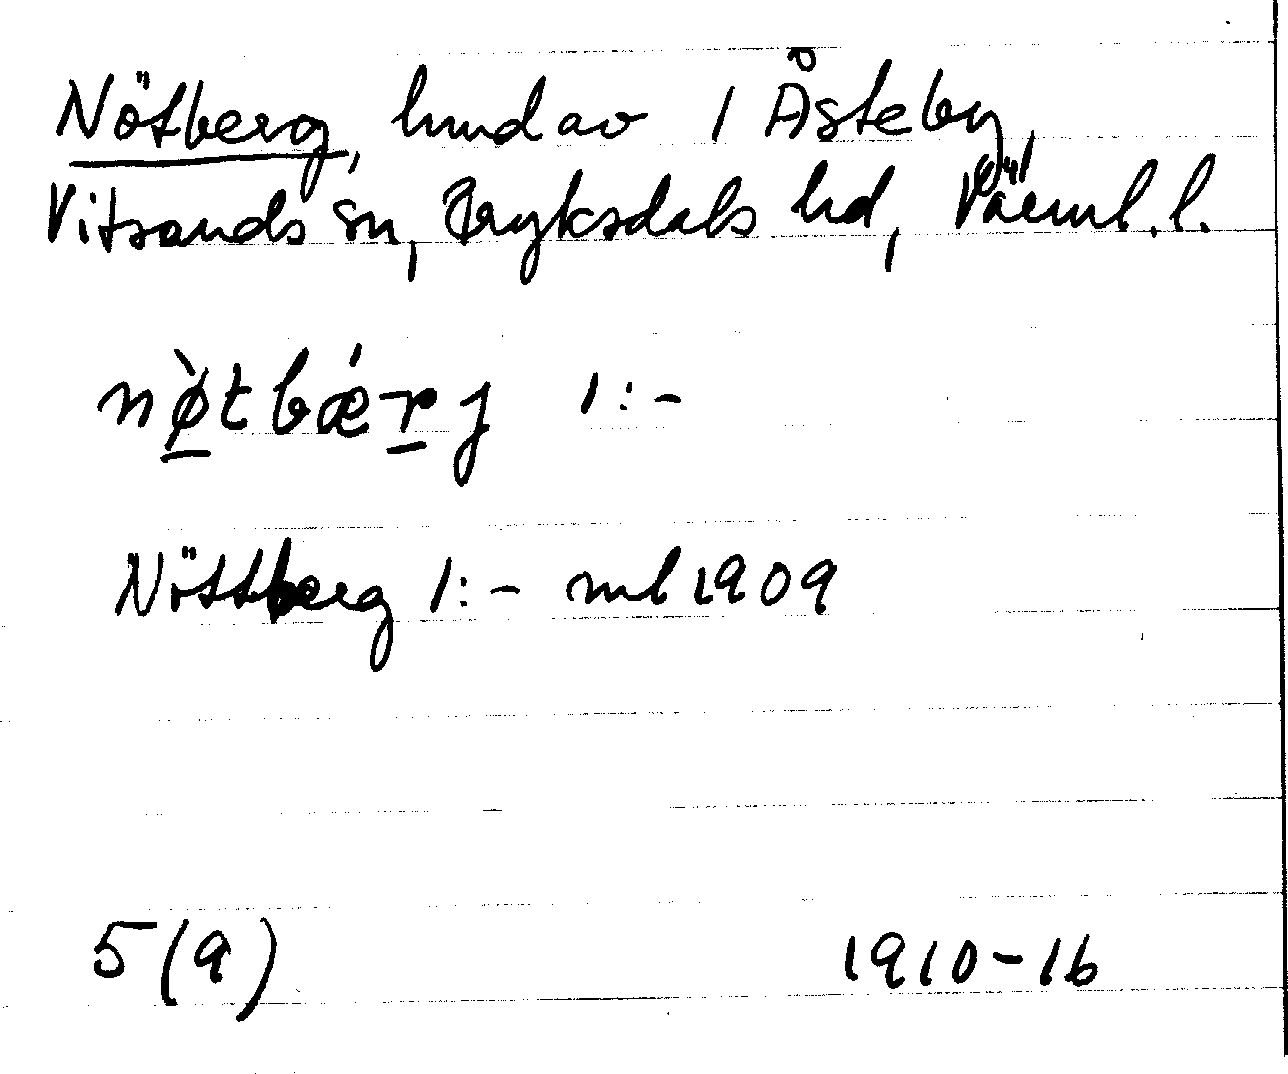 Nötberg, hmdav 1 Åsteby,
Vitsands sn, Fryksdals hd, Värml. l.
nø̀tbǽrj 1:-
Nöttberg 1:- ml 1909
5(9) 1910-16